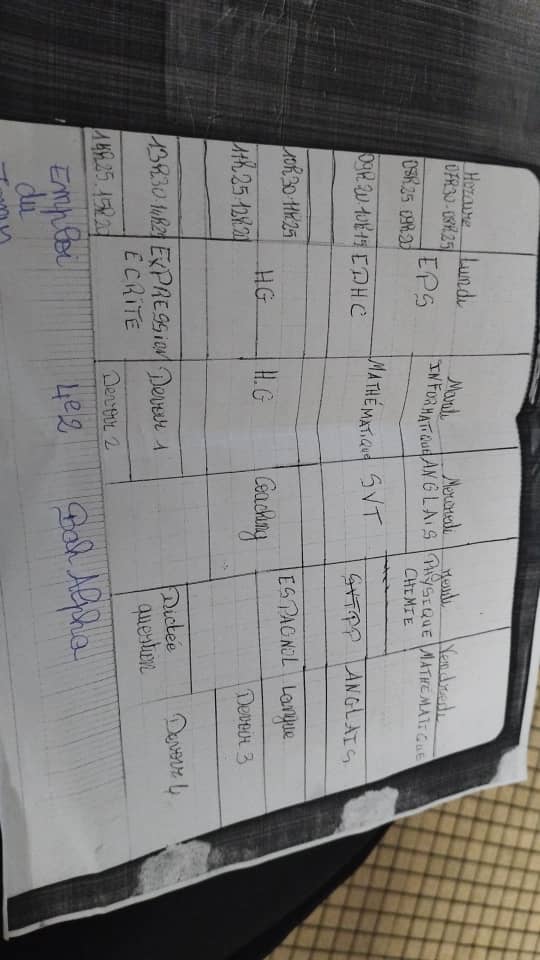 Horaire Lundi Mardi Mercredi Jeudi Vendredi
07h30-08h25 EPS INFORMATIQUE ANGLAIS PHYSIQUE CHIMIE MATHEMATIQUE
08h25 09h20
09h20-10h15 EDHC MATHÉMATIQUE SVT SVTPP ANGLAIS
10h30-11h25 HG H.G Coaching ESPAGNOL Langue
11h25-12h20 Devoir 3
13h30-14h25 EXPRESSION ECRITE Devoir 1 Dictée question Devoir 4
14h25-15h20 Devoir 2
Emploi du 4e2 Bah Alpha